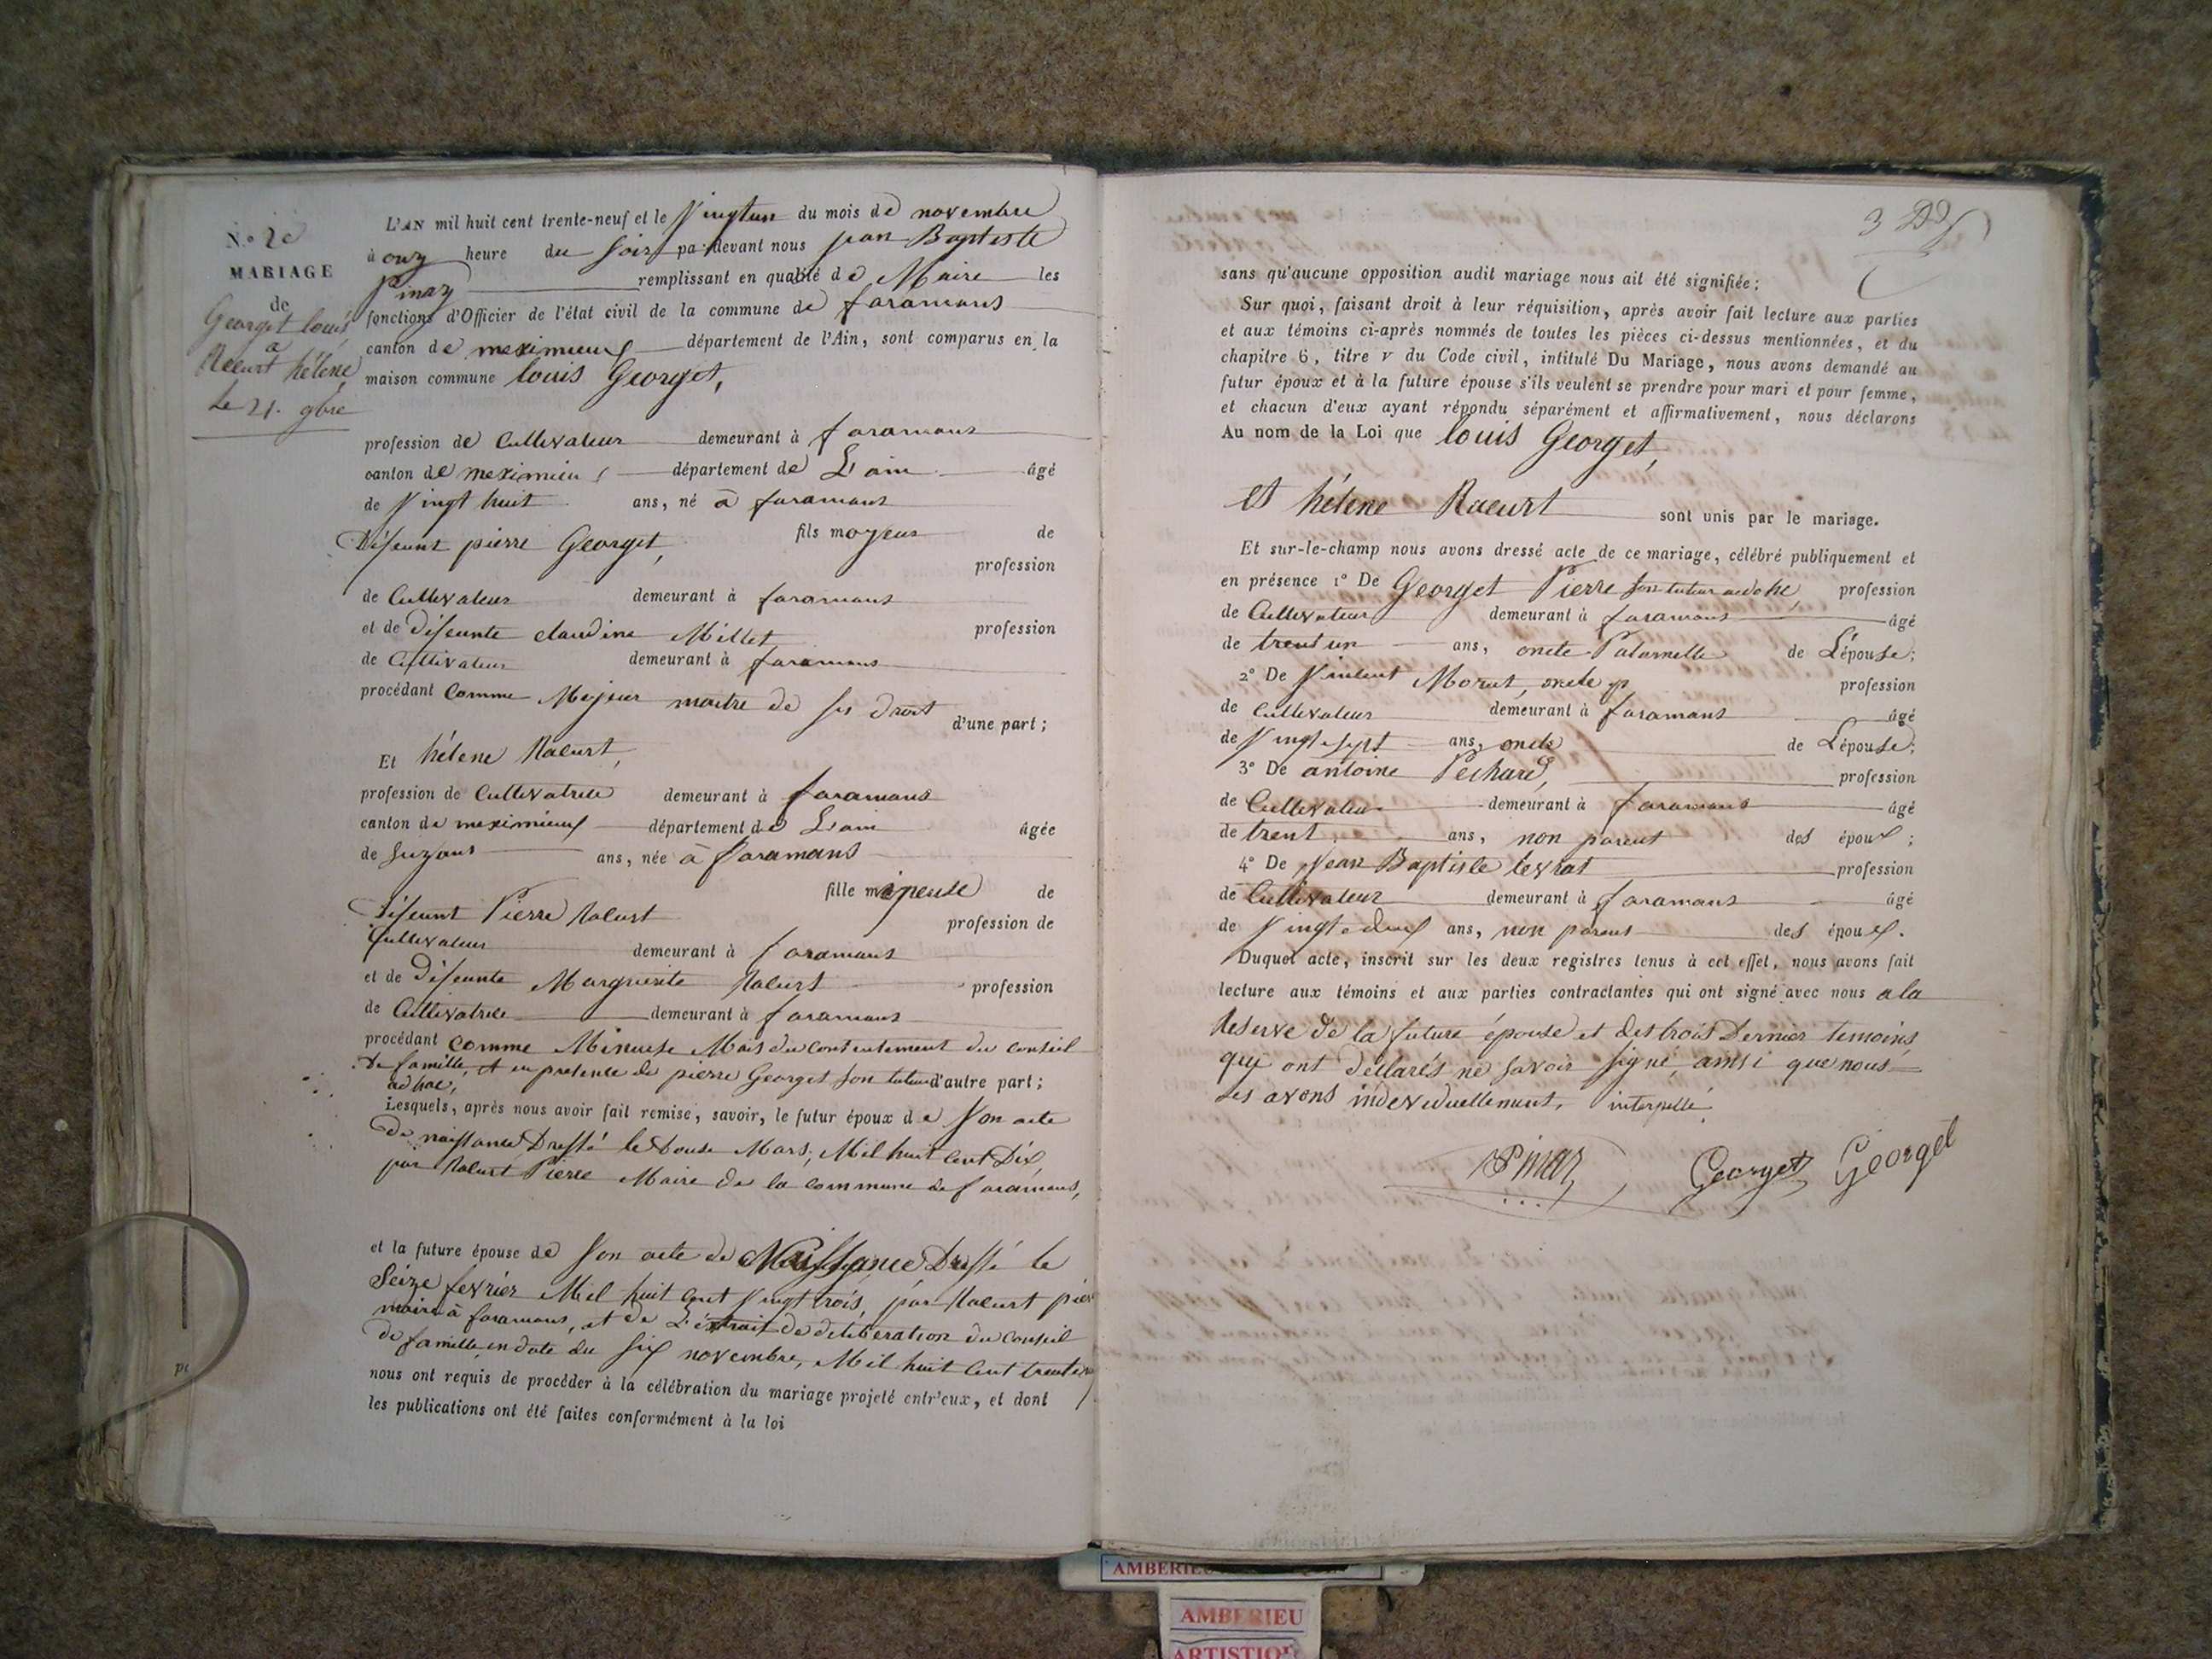 N.o 2e
MARIAGE
de
Georget louis
a
Racurt hélène
Le 21. 9bre
L'AN mil huit cent trente-neuf et le Vingtun du mois de novembre
à onz heure du Soir pa-devant nous jean Baptiste
Pinaz remplissant en qualité de Maire les
fonctions d'Officier de l'état civil de la commune de faramans
canton de meximieux département de l'Ain, sont comparus en la
maison commune louis Georget,
profession de Cultivateur demeurant à faramans
canton de meximieu département de L'ain âgé
de Vingt huit ans, né à faramans
fils majeur de
Défeunt pierre Georget, profession
de Cultivateur demeurant à faramans
et de Défeunte claudine Millet profession
de Cultivateur demeurant à faramans
procédant Comme Majeur maitre de ses droit
d'une part ;
Et hélene Racurt,
profession de Cultivatrice demeurant à faramans
canton de meximieux département de L'ain âgée
de Suzans ans, née à faramans
fille mineuse de
Défeunt Pierre Racurt profession de
Cultivateur demeurant à faramans
et de Défeunte Marguerite Racurt profession
de Cultivatrice demeurant à faramans
procédant comme Mineuse Mais du Contentement du conseil
De famille, et en presence de pierre Georget son tuteur d'autre part ;
ad hac,
Lesquels, après nous avoir fait remise, savoir, le futur époux de Son acte
De naissance Dressé le Douse Mars, Mil huit Cent Dix,
par Racurt Pierre Maire de la Commune de faramans,
et la future épouse de Son acte de Naissance Dressé le
Seize fevrier Mil huit Cent Vingt trois, par Racurt pier
maire à faramans, et de L'extrait de deliberation du Conseil
De famille en date du Six novembre, Mil huit Cent trente
nous ont requis de procéder à la célébration du mariage projeté entr'eux, et dont
les publications ont été faites conformément à la loi
3
sans qu'aucune opposition audit mariage nous ait été signifiée ;
Sur quoi, faisant droit à leur réquisition, après avoir fait lecture aux parties
et aux témoins ci-après nommés de toutes les pièces ci-dessus mentionnées, et du
chapitre 6, titre V du Code civil, intitulé Du Mariage, nous avons demandé au
futur époux et à la future épouse s'ils veulent se prendre pour mari et pour femme,
et chacun d'eux ayant répondu séparément et affirmativement, nous déclarons
Au nom de la Loi que louis Georget,
et hélene Racurt sont unis par le mariage.
Et sur-le-champ nous avons dressé acte de ce mariage, célébré publiquement et
en présence 1° De Georget Pierre son tuteur profession
de Cultivateur demeurant à faramans âgé
de trentun ans, oncle Paternelle de L'épouse ;
2° De Vincent Moret, oncle profession
de cultivateur demeurant à faramans âgé
de Vingtesept ans, oncle de L'épouse ;
3° De antoine Pechard, profession
de Cultivateur demeurant à faramans âgé
de trent ans, non parent des époux ;
4° De Jean Baptiste levrat profession
de Cultivateur demeurant à faramans âgé
de Vingtedeux ans, non parent des époux.
Duquel acte, inscrit sur les deux registres tenus à cet effet, nous avons fait
lecture aux témoins et aux parties contractantes qui ont signé avec nous a la
Reserve de la future épouse et des trois Dernier temoins,
qui ont Déclarés ne Savoir Signé, ainsi que nous
Les avons indeviduellement, interpellé.
Pinaz Georget Georget
AMBERIEU
ARTISTIQ